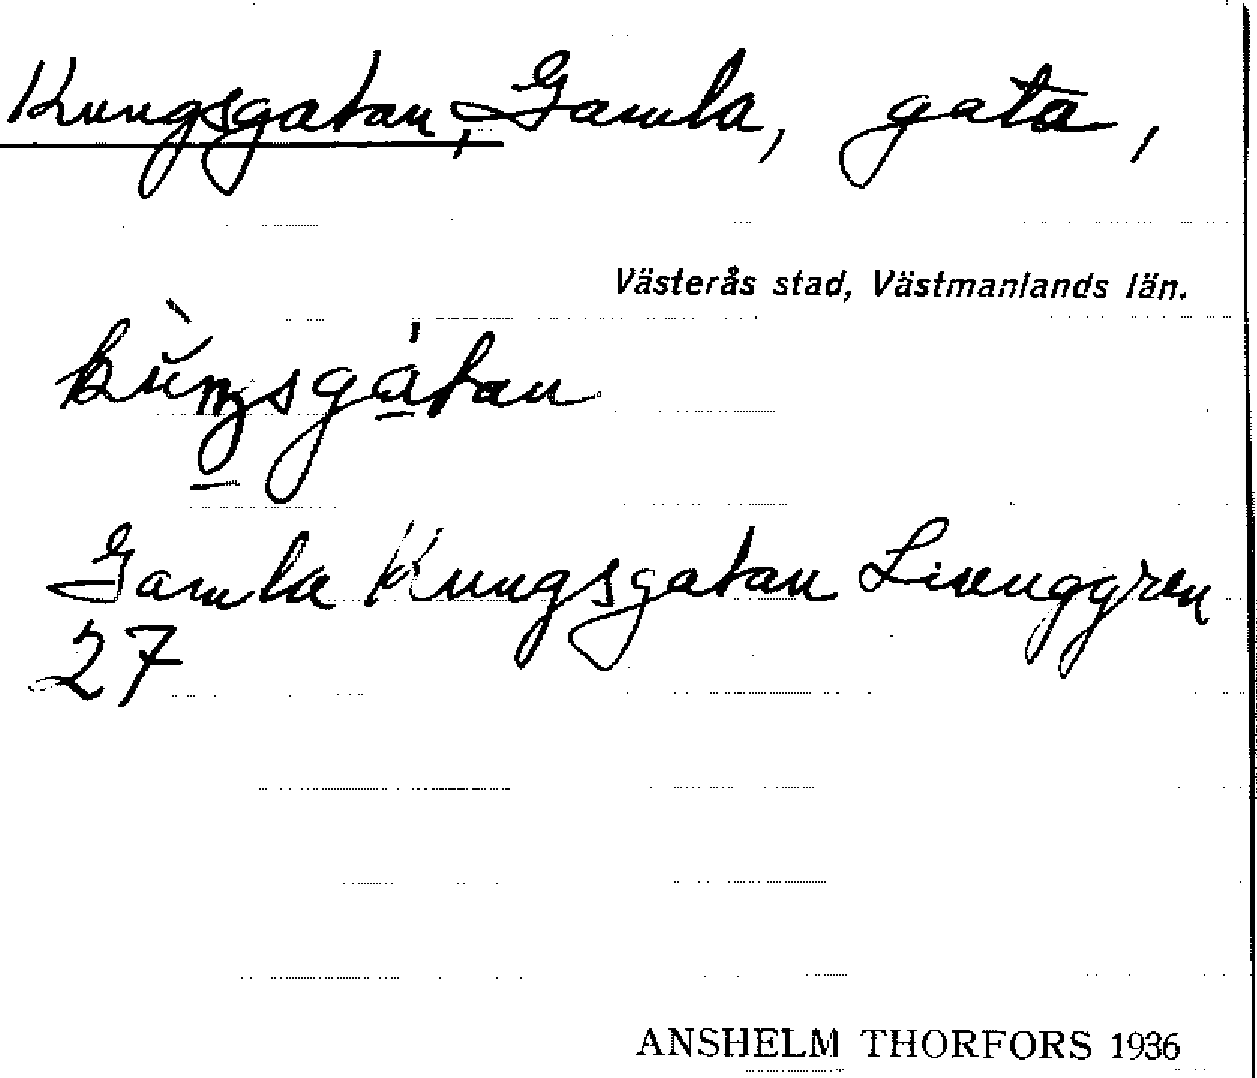 Kungsgatan, Gamla, gata,
Västerås stad, Västmanlands län.
Gamla Kungsgatan Livenggren
27
ANSHELM THORFORS 1936